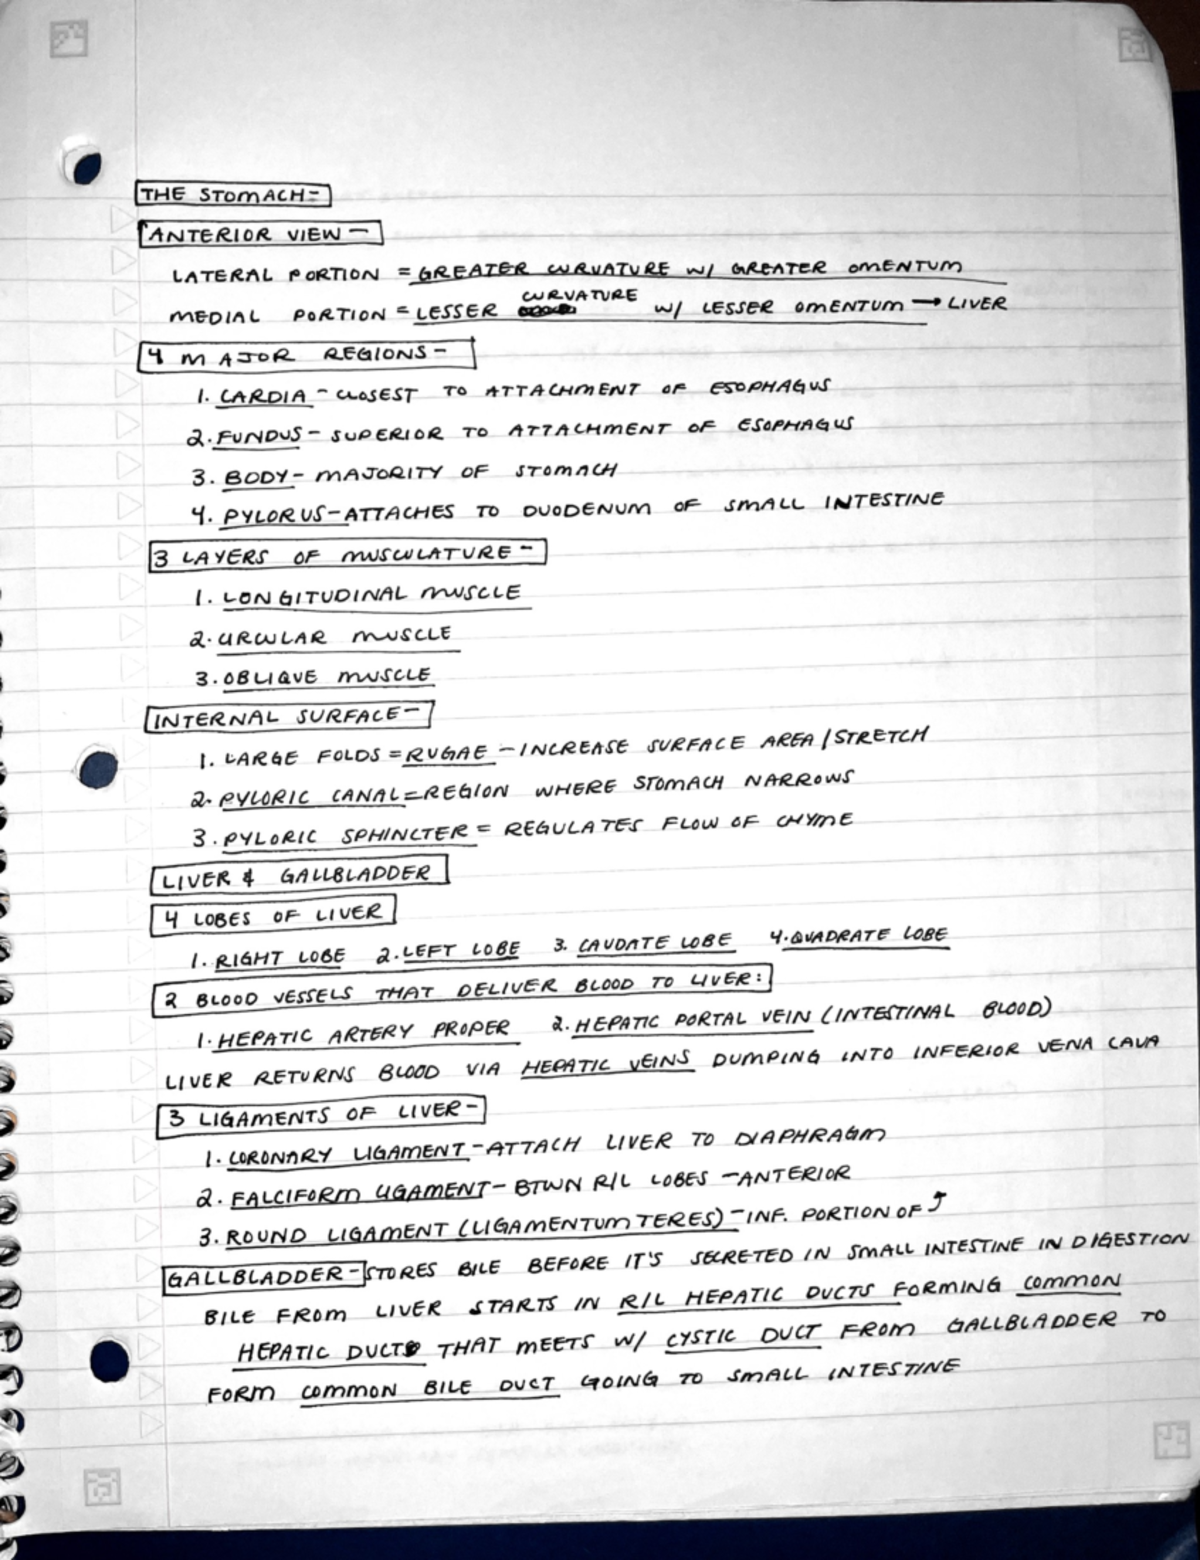 THE STOMACH-
ANTERIOR VIEW-
LATERAL PORTION = GREATER CURVATURE W/ GREATER OMENTUM
MEDIAL PORTION = LESSER CURVATURE W/ LESSER OMENTUM → LIVER
4 MAJOR REGIONS-
1. CARDIA - CLOSEST TO ATTACHMENT OF ESOPHAGUS
2. FUNDUS - SUPERIOR TO ATTACHMENT OF ESOPHAGUS
3. BODY - MAJORITY OF STOMACH
4. PYLORUS - ATTACHES TO DUODENUM OF SMALL INTESTINE
3 LAYERS OF MUSCULATURE-
1. LONGITUDINAL MUSCLE
2. CIRCULAR MUSCLE
3. OBLIQUE MUSCLE
INTERNAL SURFACE-
1. LARGE FOLDS = RUGAE - INCREASE SURFACE AREA/STRETCH
2. PYLORIC CANAL = REGION WHERE STOMACH NARROWS
3. PYLORIC SPHINCTER = REGULATES FLOW OF CHYME
LIVER & GALLBLADDER
4 LOBES OF LIVER
1. RIGHT LOBE 2. LEFT LOBE 3. CAUDATE LOBE 4. QUADRATE LOBE
2 BLOOD VESSELS THAT DELIVER BLOOD TO LIVER:
1. HEPATIC ARTERY PROPER 2. HEPATIC PORTAL VEIN (INTESTINAL BLOOD)
LIVER RETURNS BLOOD VIA HEPATIC VEINS DUMPING INTO INFERIOR VENA CAVA
3 LIGAMENTS OF LIVER-
1. CORONARY LIGAMENT - ATTACH LIVER TO DIAPHRAGM
2. FALCIFORM LIGAMENT - BTWN R/L LOBES - ANTERIOR
3. ROUND LIGAMENT (LIGAMENTUM TERES) - INF. PORTION OF ⤴
GALLBLADDER - STORES BILE BEFORE IT'S SECRETED IN SMALL INTESTINE IN DIGESTION
BILE FROM LIVER STARTS IN R/L HEPATIC DUCTS FORMING COMMON
HEPATIC DUCT THAT MEETS W/ CYSTIC DUCT FROM GALLBLADDER TO
FORM COMMON BILE DUCT GOING TO SMALL INTESTINE